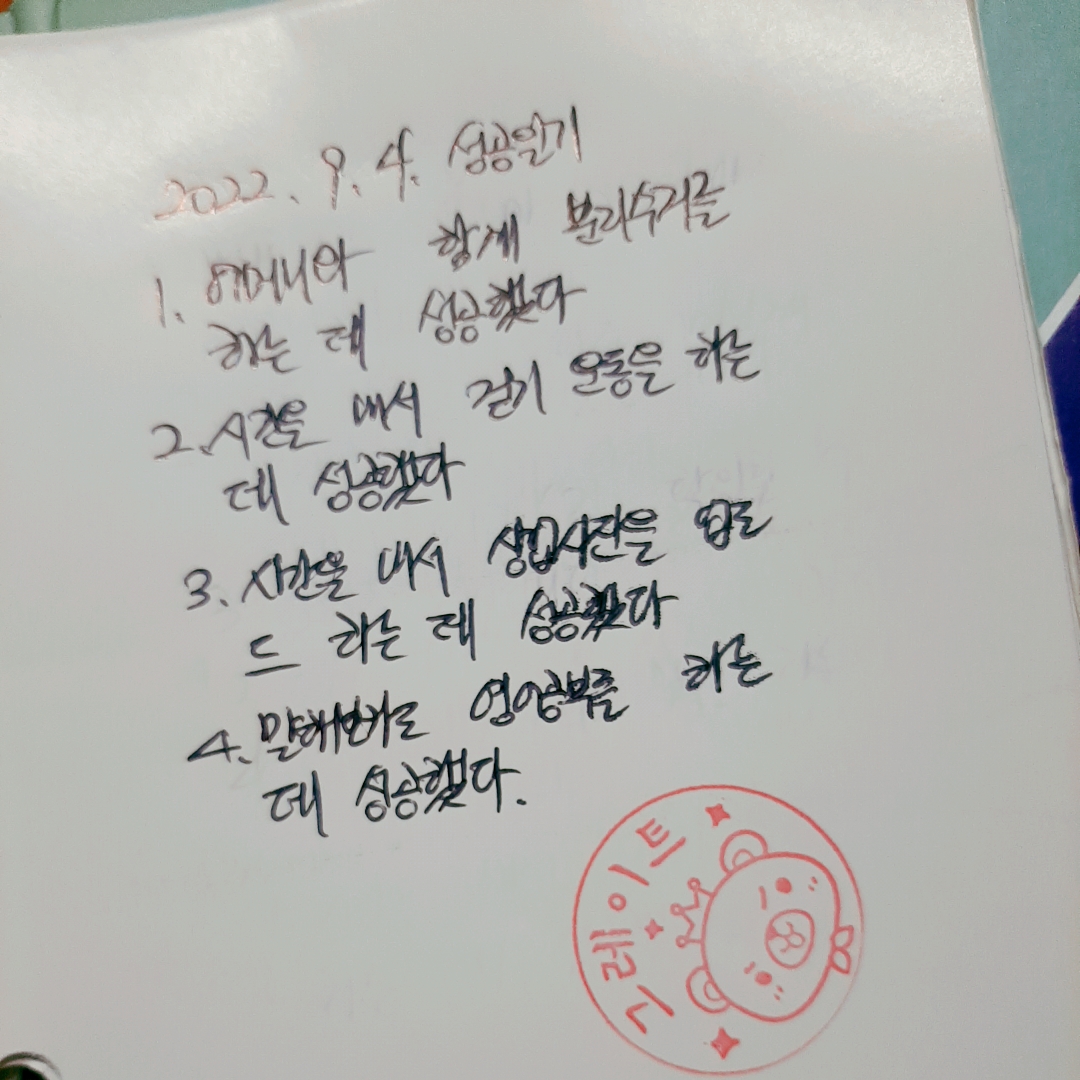 2022. 9. 4. 성공일기
1. 어머니와 함께 분리수거를
하는 데 성공했다
2. 시간을 내서 걷기 운동을 하는
데 성공했다
3. 시간을 내서 상업사진을 업로
드 하는 데 성공했다
4. 말해보카로 영어공부를 하는
데 성공했다.
그레이트